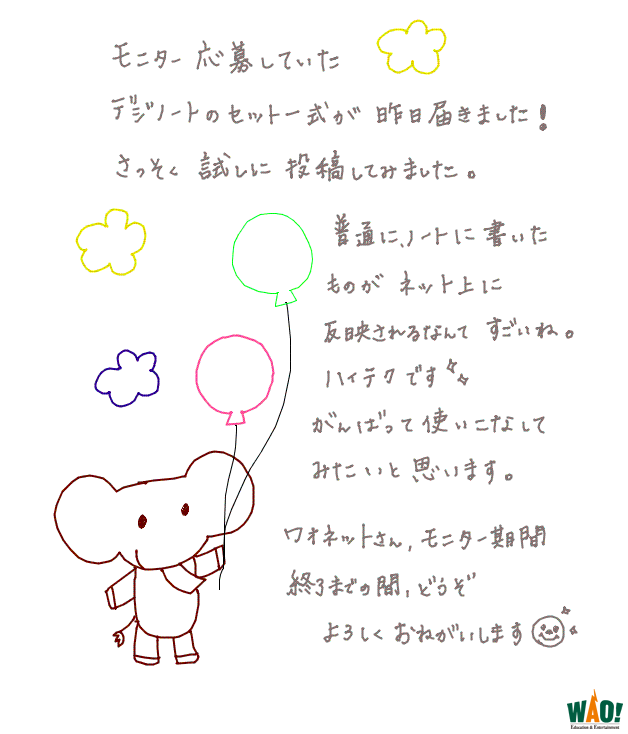 モニター応募していた
デジノートのセット一式が昨日届きました!
さっそく試しに投稿してみました。
普通に、ノートに書いた
ものがネット上に
反映されるなんてすごいね。
ハイテクです
がんばって使いこなして
みたいと思います。
ワオネットさん,モニター期間
終了までの間,どうぞ
よろしくおねがいします
WAO!
Education & Entertainment